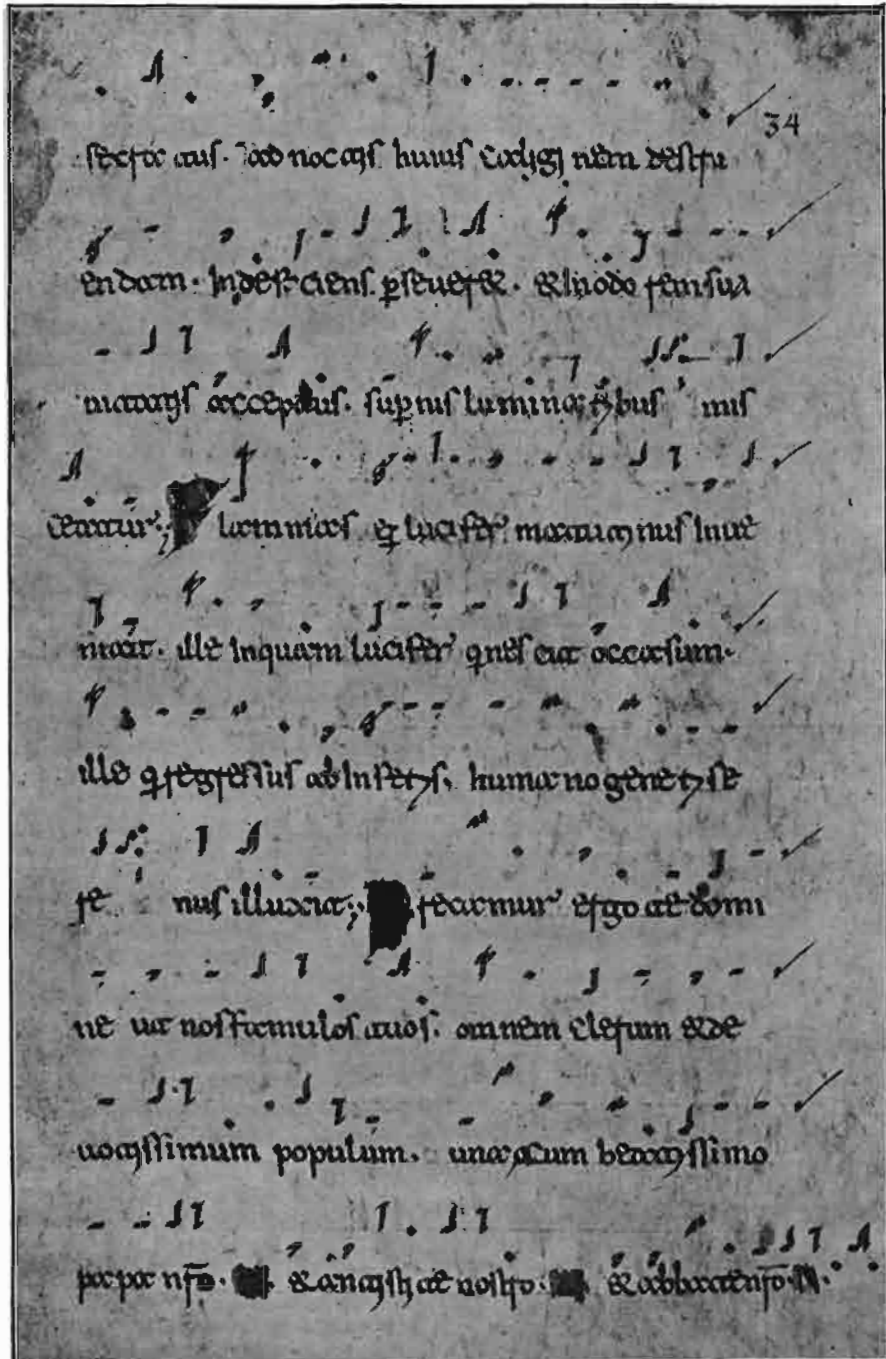 34
secra tus. ad noctis huius caligi nem destru
endam. Indeficiens p̱seueret. & In odo rem sua
uitatis acceptus. sup̱nis luminaribus mis
ceatur; Flammas ei lucifer matutinus Inue
niat. ille Inquam lucifer qui nescit occasum.
ille q̣ regressus ab Inferis. humano generi se
re nus illuxit; Precamur ergo te domi
ne ut nos famulos tuos. omnem clerum & de
uotissimum populum. una cum beatissimo
papa nr̄o. & antistite nostro. & abbate nr̄o. N.